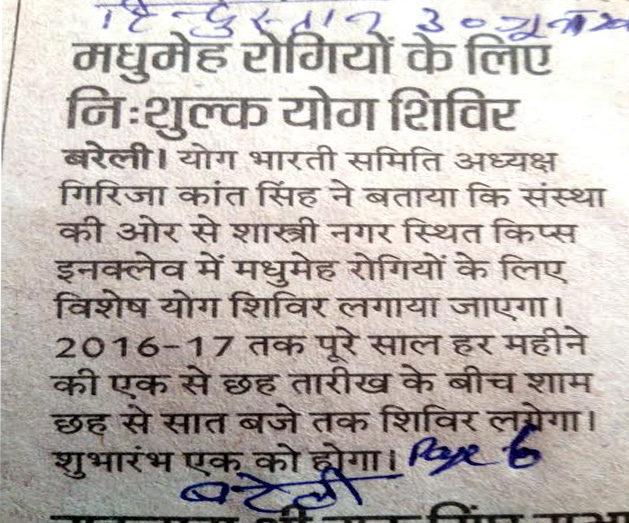 हिन्दुस्तान 30 जून
मधुमेह रोगियों के लिए
निःशुल्क योग शिविर
बरेली। योग भारती समिति अध्यक्ष
गिरिजा कांत सिंह ने बताया कि संस्था
की ओर से शास्त्री नगर स्थित किप्स
इनक्लेव में मधुमेह रोगियों के लिए
विशेष योग शिविर लगाया जाएगा।
2016-17 तक पूरे साल हर महीने
की एक से छह तारीख के बीच शाम
छह से सात बजे तक शिविर लगेगा।
शुभारंभ एक को होगा। Page 6
बरेली